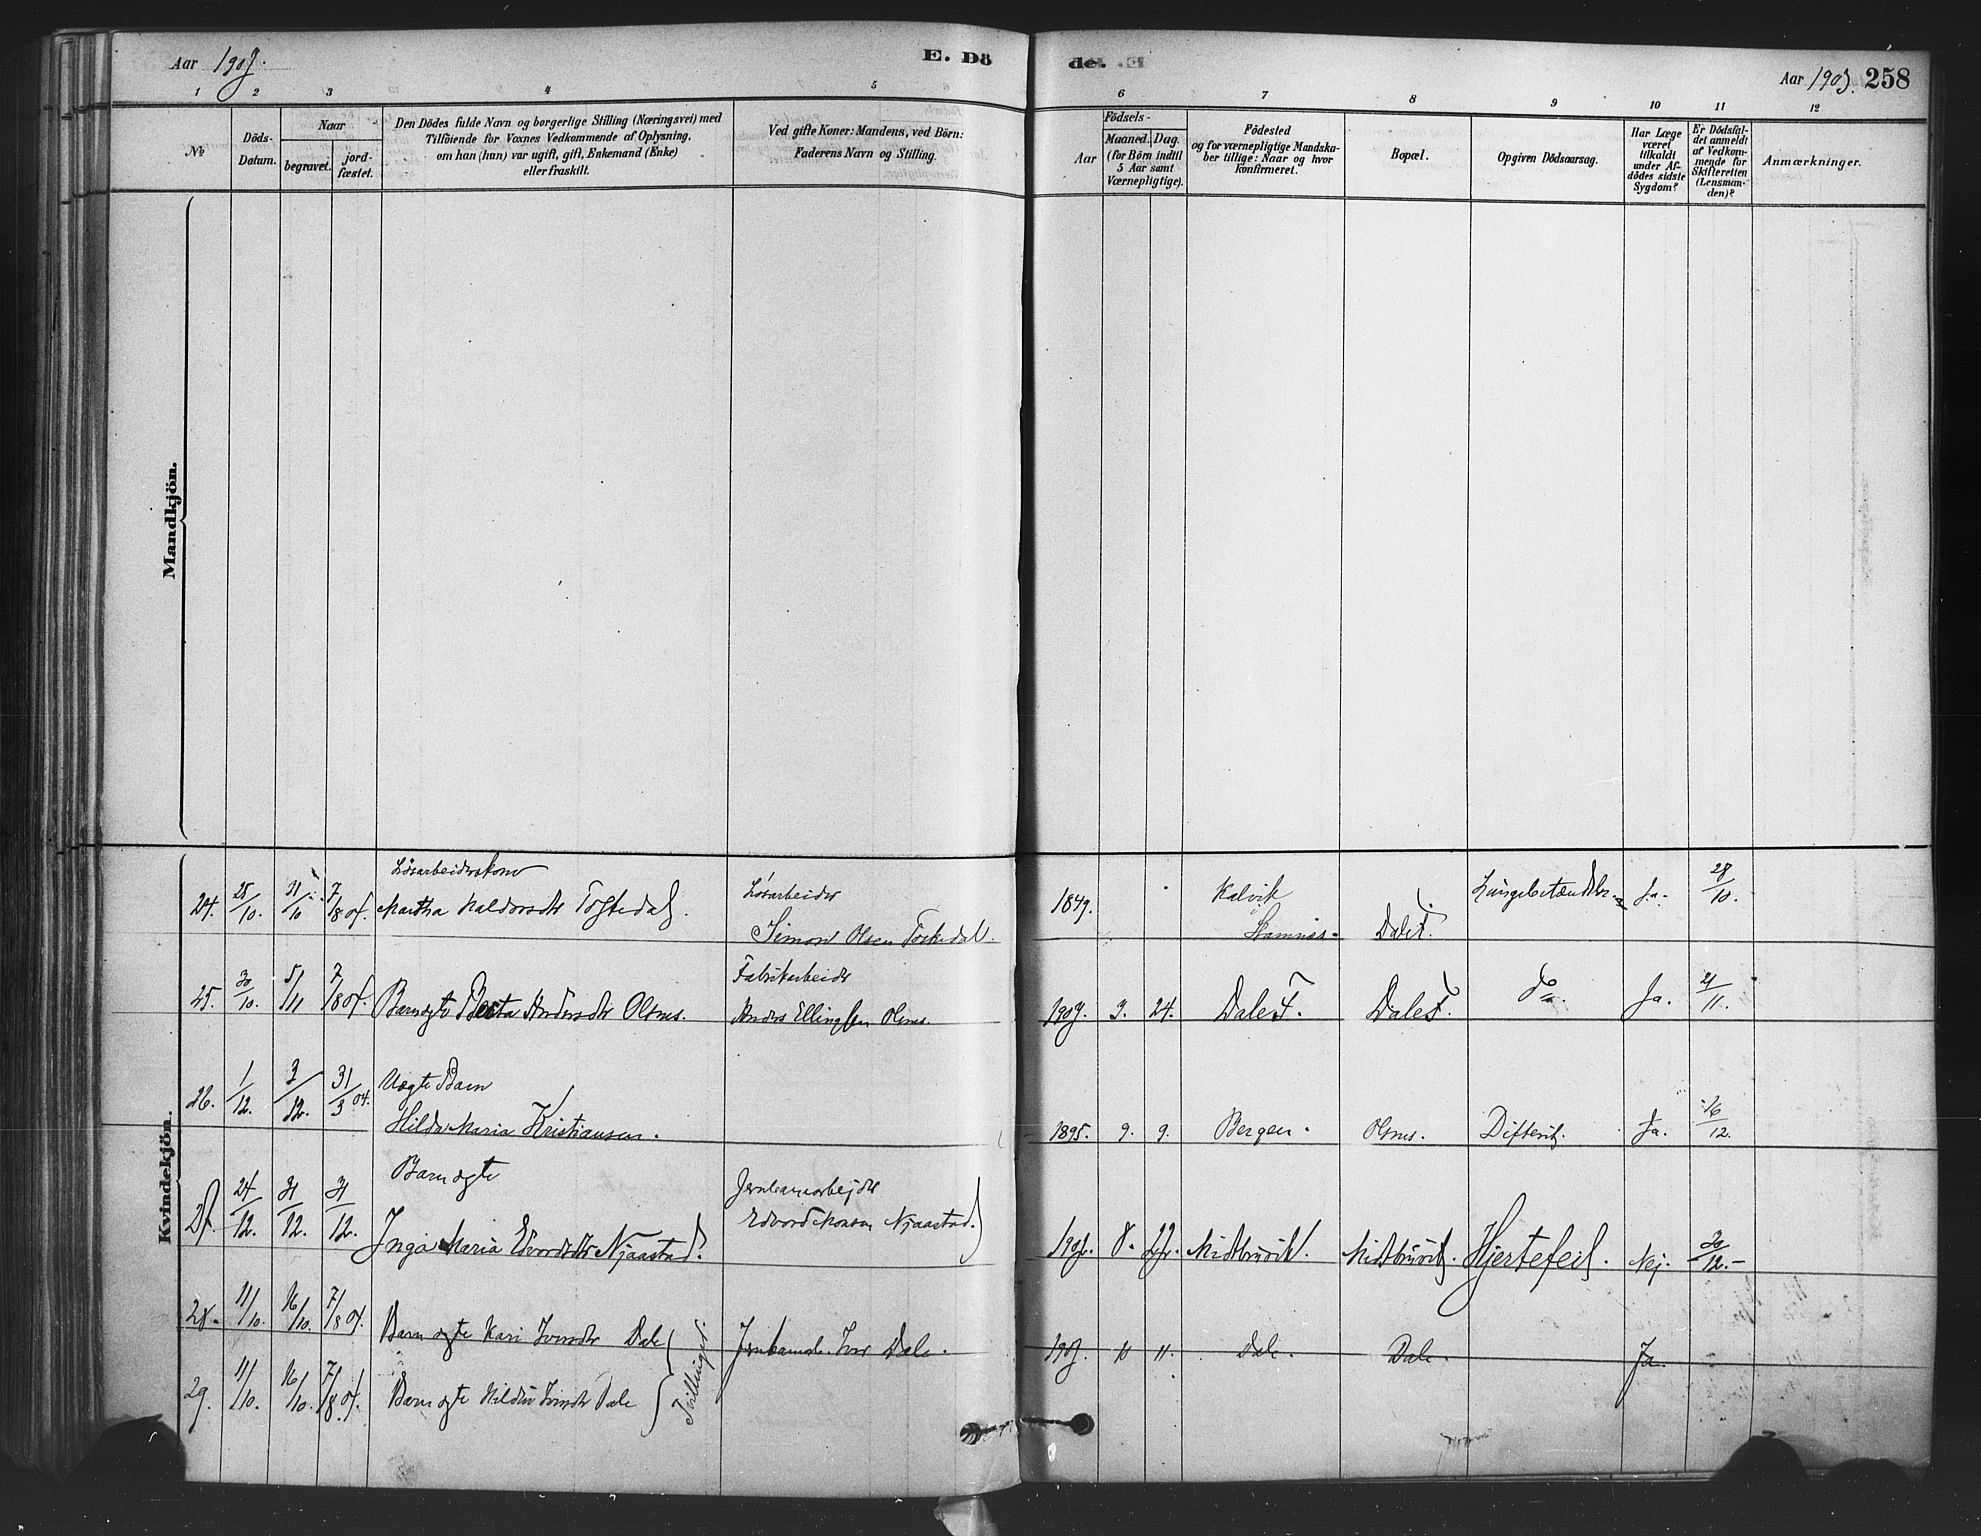 Aar 1903.
E. Dö
de.
Aar 1903. 258
1 2 3 4 5 6 7 8 9 10 11 12
№
Döds-
Datum.
Naar
begravet.
jord-
fæstet.
Den Dödes fulde Navn og borgerlige Stilling (Næringsvei) med
Tilföiende for Voxnes Vedkommende af Oplysning,
om han (hun) var ugift, gift, Enkemand (Enke)
eller fraskilt.
Ved gifte Koner: Mandens, ved Börn:
Faderens Navn og Stilling.
Födsels-
Aar
Maaned. Dag.
(for Börn indtil
5 Aar samt
Værnepligtige).
Födested
og for værnepligtige Mandska-
ber tillige: Naar og hvor
konfirmeret.
Bopæl.
Opgiven Dödsaarsag.
Har Læge
været
tilkaldt
under Af-
dödes sidste
Sygdom?
Er Dödsfal-
det anmeldt
af Vedkom-
mende for
Skifteretten
(Lensman-
den)?
Anmærkninger.
Mandkjön.
Kvindekjön.
Lösarbeiderskone
24. 25/10. 31/10. 7/8 04. Martha Haldorsdtr
Lösarbeider
Simon Olsen
1849. Kalvik
Stamnes. Dale F. Lungebetændelse Ja. 28/10.
25. 30/10. 5/11 7/8 04. Barn ægte Berta Andersdtr Olsnes.
Fabrikarbeider
Anders Ellingsen Olsnes.
1903. 3. 24. Dale F. Dale F. do. Ja. 11.
26. 1/12. 3/12. 31/3 04. Uægte Barn
Hilda Maria Kristiansen.
1895. 9. 9. Bergen. Olsnes. Difterit. Ja. 16/12.
27. 24/12. 31/12. 31/12. Barn ægte
Inga Maria Edvardsdtr Njaastad.
Jernbanearbejder
Edvard Monsen Njaastad.
8. Hjertefeil. Nej. 30/12.
28. 11/10. 16/10. 7/8 04. Barn ægte Kari Iversdtr Dale
Iver Dale.
1903. 10 11. Dale. Dale. Ja.
29. 11/10. 16/10. 7/8 04. Barn ægte Iversdtr Dale
Tvillinger.